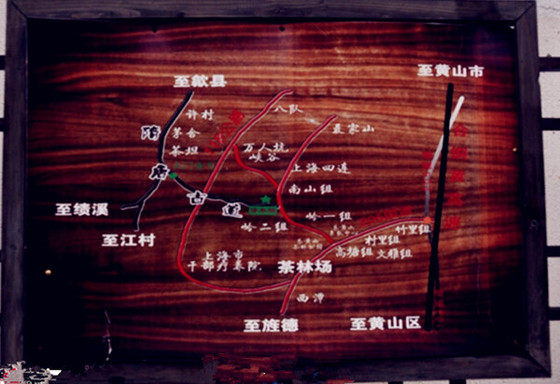 至黄山市
至歙县
八队
许村
茅舍
茶坦
聂家山
万人坑
峡谷
上海四连
南山组
唐
古
道
至绩溪
岭一组
岭二组
竹里组
至江村
村里组
高塘组
文雅组
上海市
干部疗养院
茶林场
西潭
至旌德
至黄山区